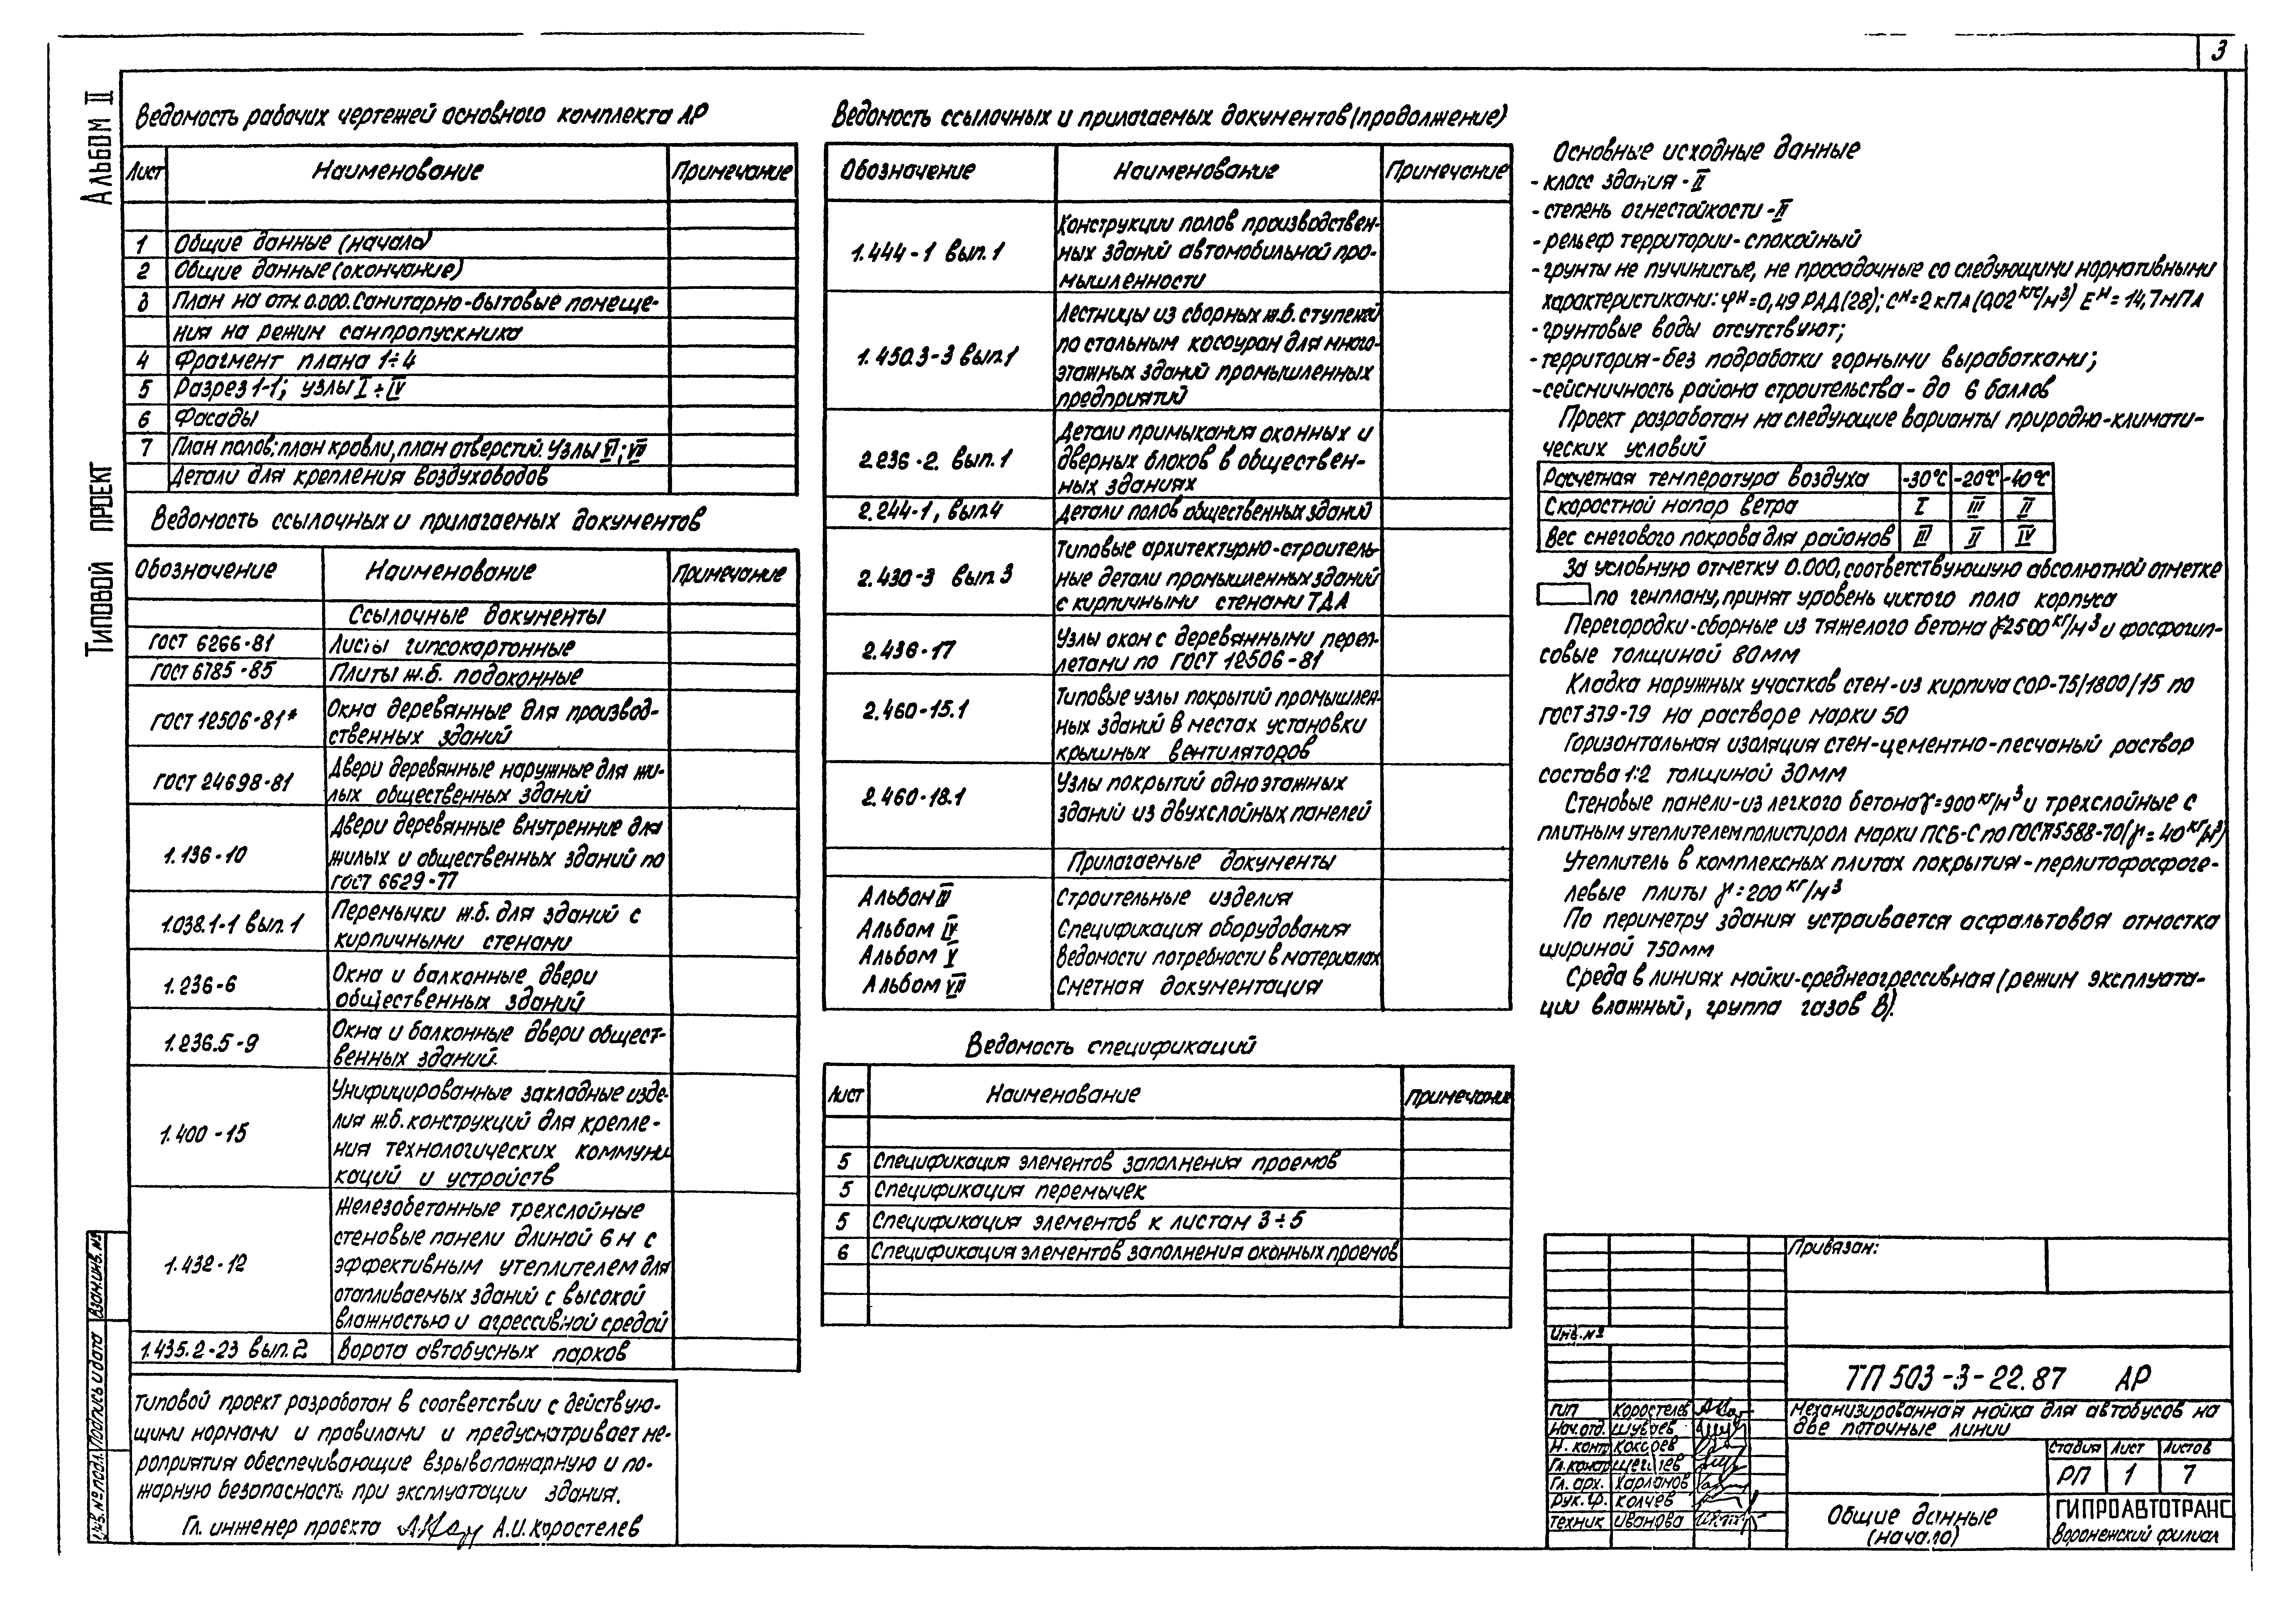 3
Альбом II
Типовой проект
Ведомость рабочих чертежей основного комплекта АР
Лист Наименование Примечание
1 Общие данные (начало)
2 Общие данные (окончание)
3 План на отм. 0.000. Санитарно-бытовые помеще-
ния на режим санпропускника
4 Фрагмент плана 1÷4
5 Разрез 1-1; узлы I ÷ IV
6 Фасады
7 План полов; план кровли, план отверстий. Узлы VI; VII
Детали для крепления воздуховодов
Ведомость ссылочных и прилагаемых документов
Обозначение Наименование Примечание
Ссылочные документы
ГОСТ 6266-81 Листы гипсокартонные
ГОСТ 6785-85 Плиты ж.б. подоконные
ГОСТ 12506-81* Окна деревянные для производ-
ственных зданий
ГОСТ 24698-81 Двери деревянные наружные для жи-
лых общественных зданий
1.136-10 Двери деревянные внутренние для
жилых и общественных зданий по
ГОСТ 6629-77
1.038.1-1 вып. 1 Перемычки ж.б. для зданий с
кирпичными стенами
1.236-6 Окна и балконные двери
общественных зданий
1.236.5-9 Окна и балконные двери общест-
венных зданий.
1.400-15 Унифицированные закладные изде-
лия ж.б. конструкций для крепле-
ния технологических коммуни-
каций и устройств
1.432-12 Железобетонные трехслойные
стеновые панели длиной 6м с
эффективным утеплителем для
отапливаемых зданий с высокой
влажностью и агрессивной средой
1.435.2-23 вып. 2 Ворота автобусных парков
Типовой проект разработан в соответствии с действую-
щими нормами и правилами и предусматривает ме-
роприятия обеспечивающие взрывопожарную и по-
жарную безопасность при эксплуатации здания.
Гл. инженер проекта А.И. Коростелев
Инв. № подл. Подпись и дата Взам. инв. №
Ведомость ссылочных и прилагаемых документов (продолжение)
Обозначение Наименование Примечание
1.444-1 вып. 1 Конструкции полов производствен-
ных зданий автомобильной про-
мышленности
1.450.3-3 вып. 1 Лестницы из сборных ж.в. ступеней
по стальным косоурам для много-
этажных зданий промышленных
предприятий
2.236-2 вып. 1 Детали примыкания оконных и
дверных блоков в обществен-
ных зданиях
2.244-1, вып. 4 Детали полов общественных зданий
2.430-3 вып 3 Типовые архитектурно-строитель-
ные детали промышленных зданий
с кирпичными стенами ТДА
2.436-17 Узлы окон с деревянными переп-
летами по ГОСТ 12506-81
2.460-15.1 Типовые узлы покрытий промышлен-
ных зданий в местах установки
крышных вентиляторов
2.460-18.1 Узлы покрытий одноэтажных
зданий из двухслойных панелей
Прилагаемые документы
Альбом III Строительные изделия
Альбом IV Спецификация оборудования
Альбом V Ведомости потребности в материалах
Альбом VII Сметная документация
Ведомость спецификаций
Лист Наименование Примечание
5 Спецификация элементов заполнения проемов
5 Спецификация перемычек
5 Спецификация элементов к листам 3÷5
6 Спецификация элементов заполнения оконных проемов
Основные исходные данные
- класс здания - II
- степень огнестойкости - II
- рельеф территории - спокойный
- грунты не пучинистые, не просадочные со следующими нормативными
характеристиками: φн = 0,49 РАД (28); сн = 2 кПА (0,02 кгс/м³) Ен = 14,7 мПА
- грунтовые воды отсутствуют;
- территория - без подработки горными выработками;
- сейсмичность района строительства - до 6 баллов
Проект разработан на следующие варианты природно-климати-
ческих условий
Расчетная температура воздуха -30°С -20°С -40°С
Скоростной напор ветра I III II
Вес снегового покрова для районов III II IV
За условную отметку 0.000, соответствующую абсолютной отметке
по генплану, принят уровень чистого пола корпуса
Перегородки - сборные из тяжелого бетона γ=2500 кг/м³ и фосфогип-
совые толщиной 80мм
Кладка наружных участков стен - из кирпича СОР-75/1800/15 по
ГОСТ 379-79 на растворе марки 50
Горизонтальная изоляция стен - цементно-песчаный раствор
состава 1:2 толщиной 30мм
Стеновые панели - из легкого бетона γ=900 кг/м³ и трехслойные с
плитным утеплителем полистирол марки ПСБ-С по ГОСТ 15588-70 (γ = 40 кг/м³)
Утеплитель в комплексных плитах покрытия - перлитофосфоге-
левые плиты γ = 200 кг/м³
По периметру здания устраивается асфальтовая отмостка
шириной 750мм
Среда в линиях мойки - среднеагрессивная (режим эксплуата-
ции влажный, группа газов В).
Привязан:
Инв. №
ТП 503-3-22.87 АР
ГИП Коростелев
Нач. отд. Шуваев
Н. конт
Гл. констр
Гл. арх. Харламов
Рук. гр. Колчев
Техник Иванова
Механизированная мойка для автобусов на
две поточные линии
Стадия Лист Листов
РП 1 7
Общие данные
(начало)
ГИПРОАВТОТРАНС
Воронежский филиал